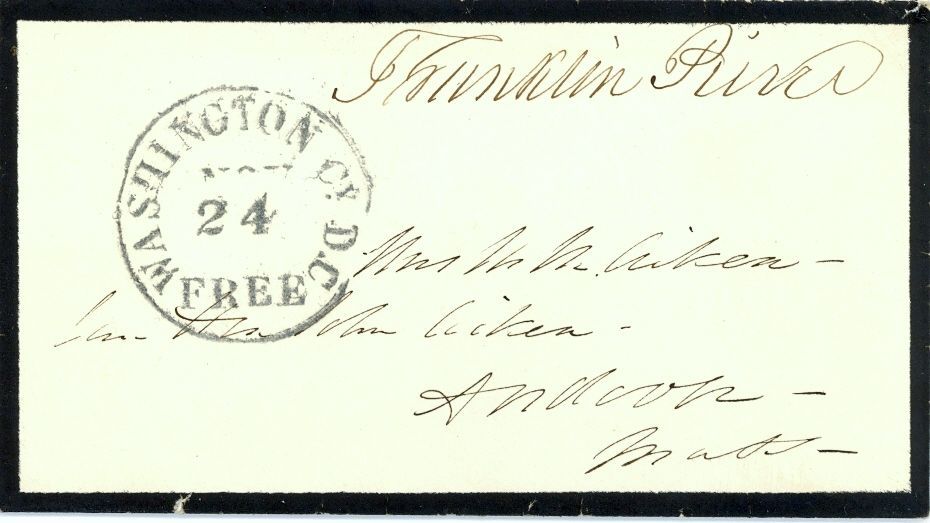 Franklin Pierce
WASHINGTON Cy. D.C.
NOV
24
FREE
Mrs M. Aiken –
Hon John Aiken –
Andover –
Mass –